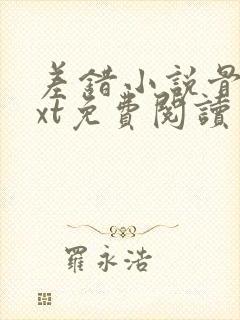 差錯小說骨
xt免費閱讀
羅永浩